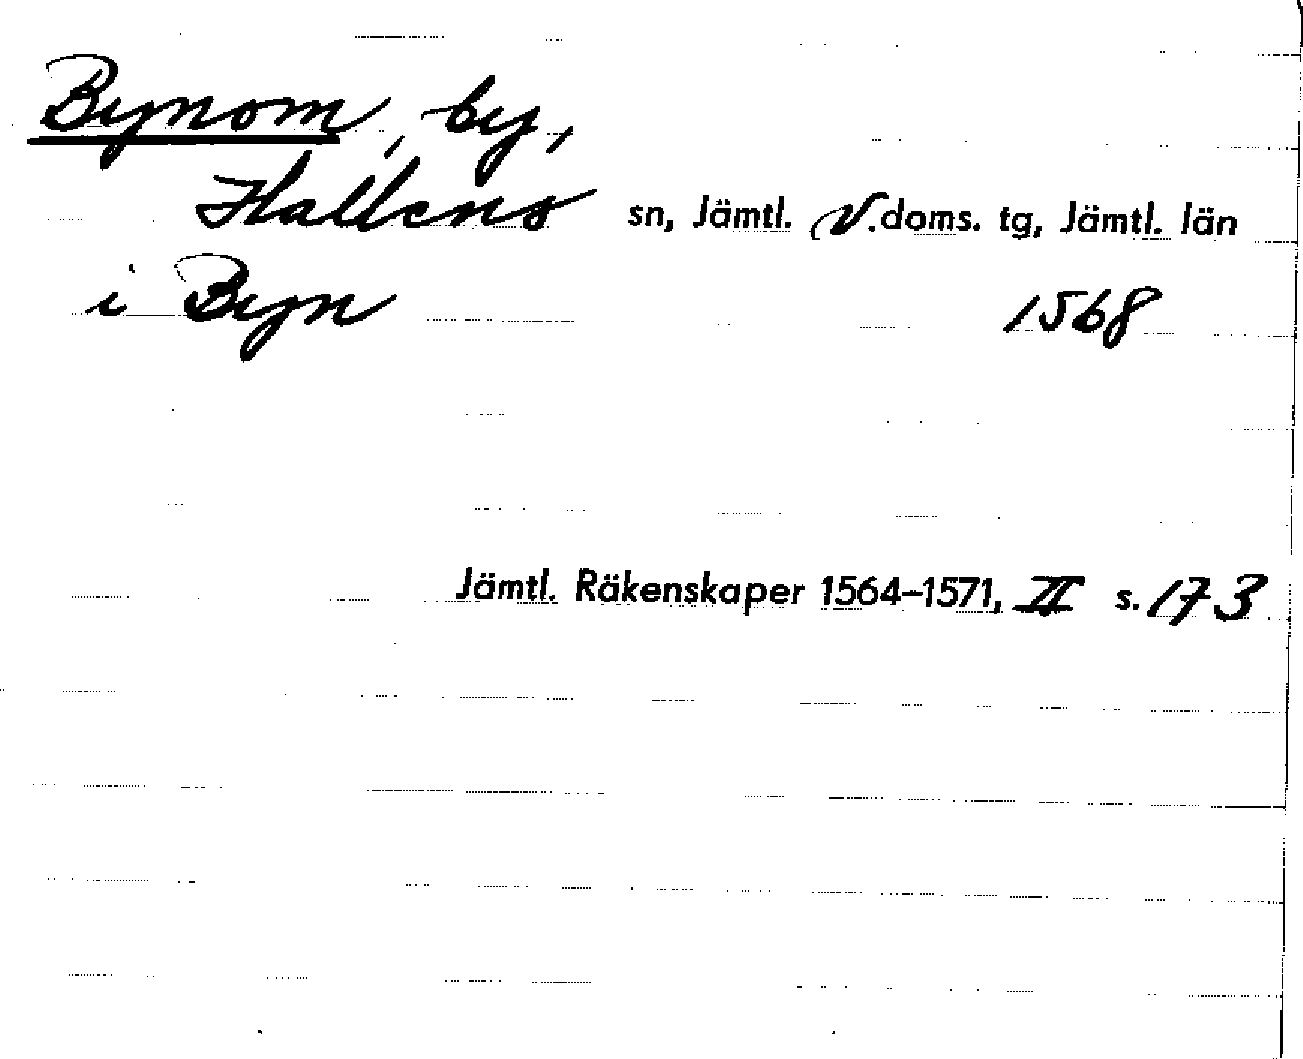 Bynom, by,
Hallens sn, Jämtl. V.doms. tg, Jämtl. län
i Byn 1568
Jämtl. Räkenskaper 1564–1571, II s. 173